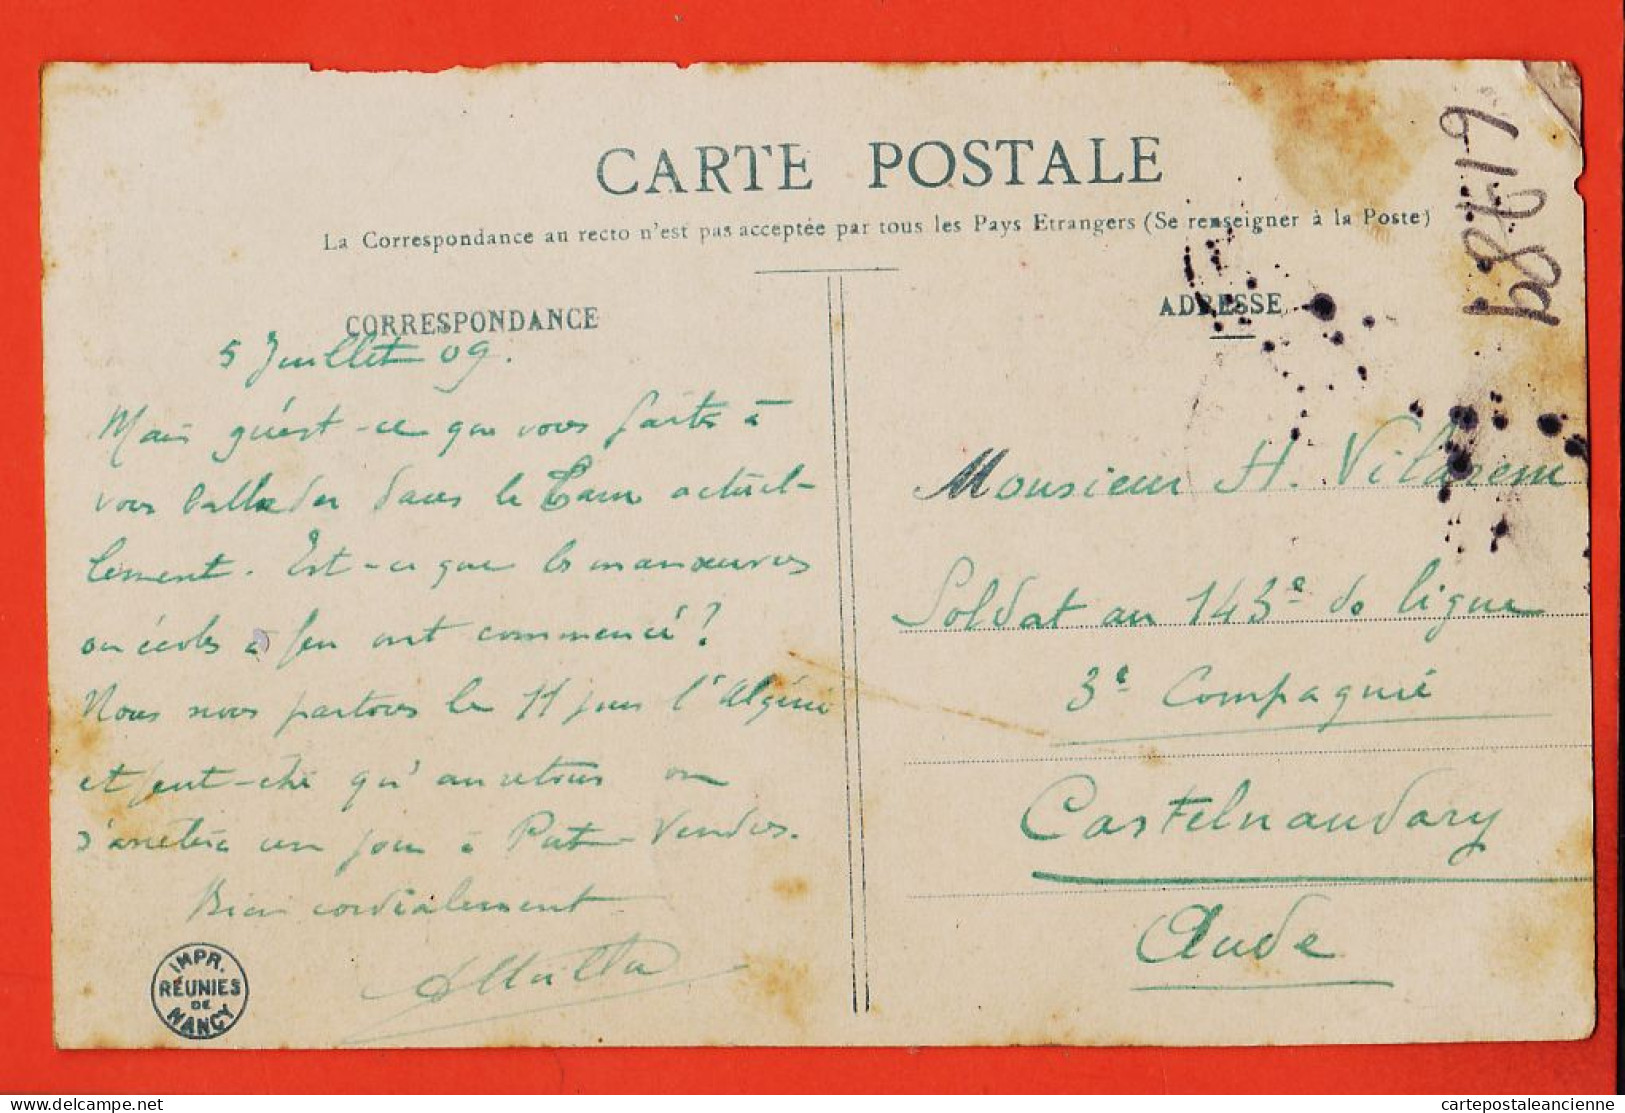 CARTE POSTALE
La Correspondance au recto n'est pas acceptée par tous les Pays Etrangers (Se renseigner à la Poste)
CORRESPONDANCE
5 Juillet 09.
Mais qu'est-ce que vous faites à
vous ballader dans le Tarn actuel-
lement. Est-ce que les manœuvres
ou écoles à feu ont commencé?
Nous nous partons le 11 pour l'Algérie
et peut-être qu'au retour on
s'arrêtera un jour à Port-Vendres.
Bien cordialement
IMPR.
RÉUNIES
DE
NANCY
ADRESSE
Monsieur H. Vilarem
Soldat au 143e de ligne
3e Compagnie
Castelnaudary
Aude
cartepostaleancienne